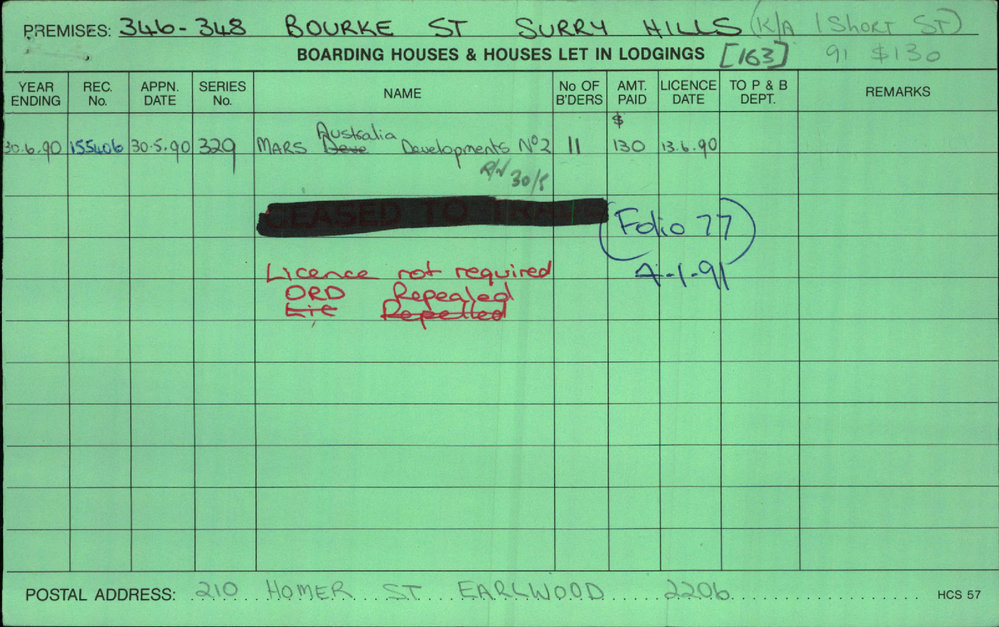 PREMISES: 346-348 BOURKE ST SURRY HILLS (K/A 1 SHORT ST)
BOARDING HOUSES & HOUSES LET IN LODGINGS [163] 91 $130
YEAR ENDING REC. No. APPN. DATE SERIES No. NAME No OF B'DERS AMT. PAID LICENCE DATE TO P & B DEPT. REMARKS
$
Australia
30.6.90 155406 30.5.90 329 MARS Deve Developments No2 11 130 13.6.90
R/N 30/5
EASED TO
Folio 77
4-1-91
Licence not required
ORD Repealed
Lic Repelled
POSTAL ADDRESS: 210 HOMER ST EARLWOOD 2206
HCS 57